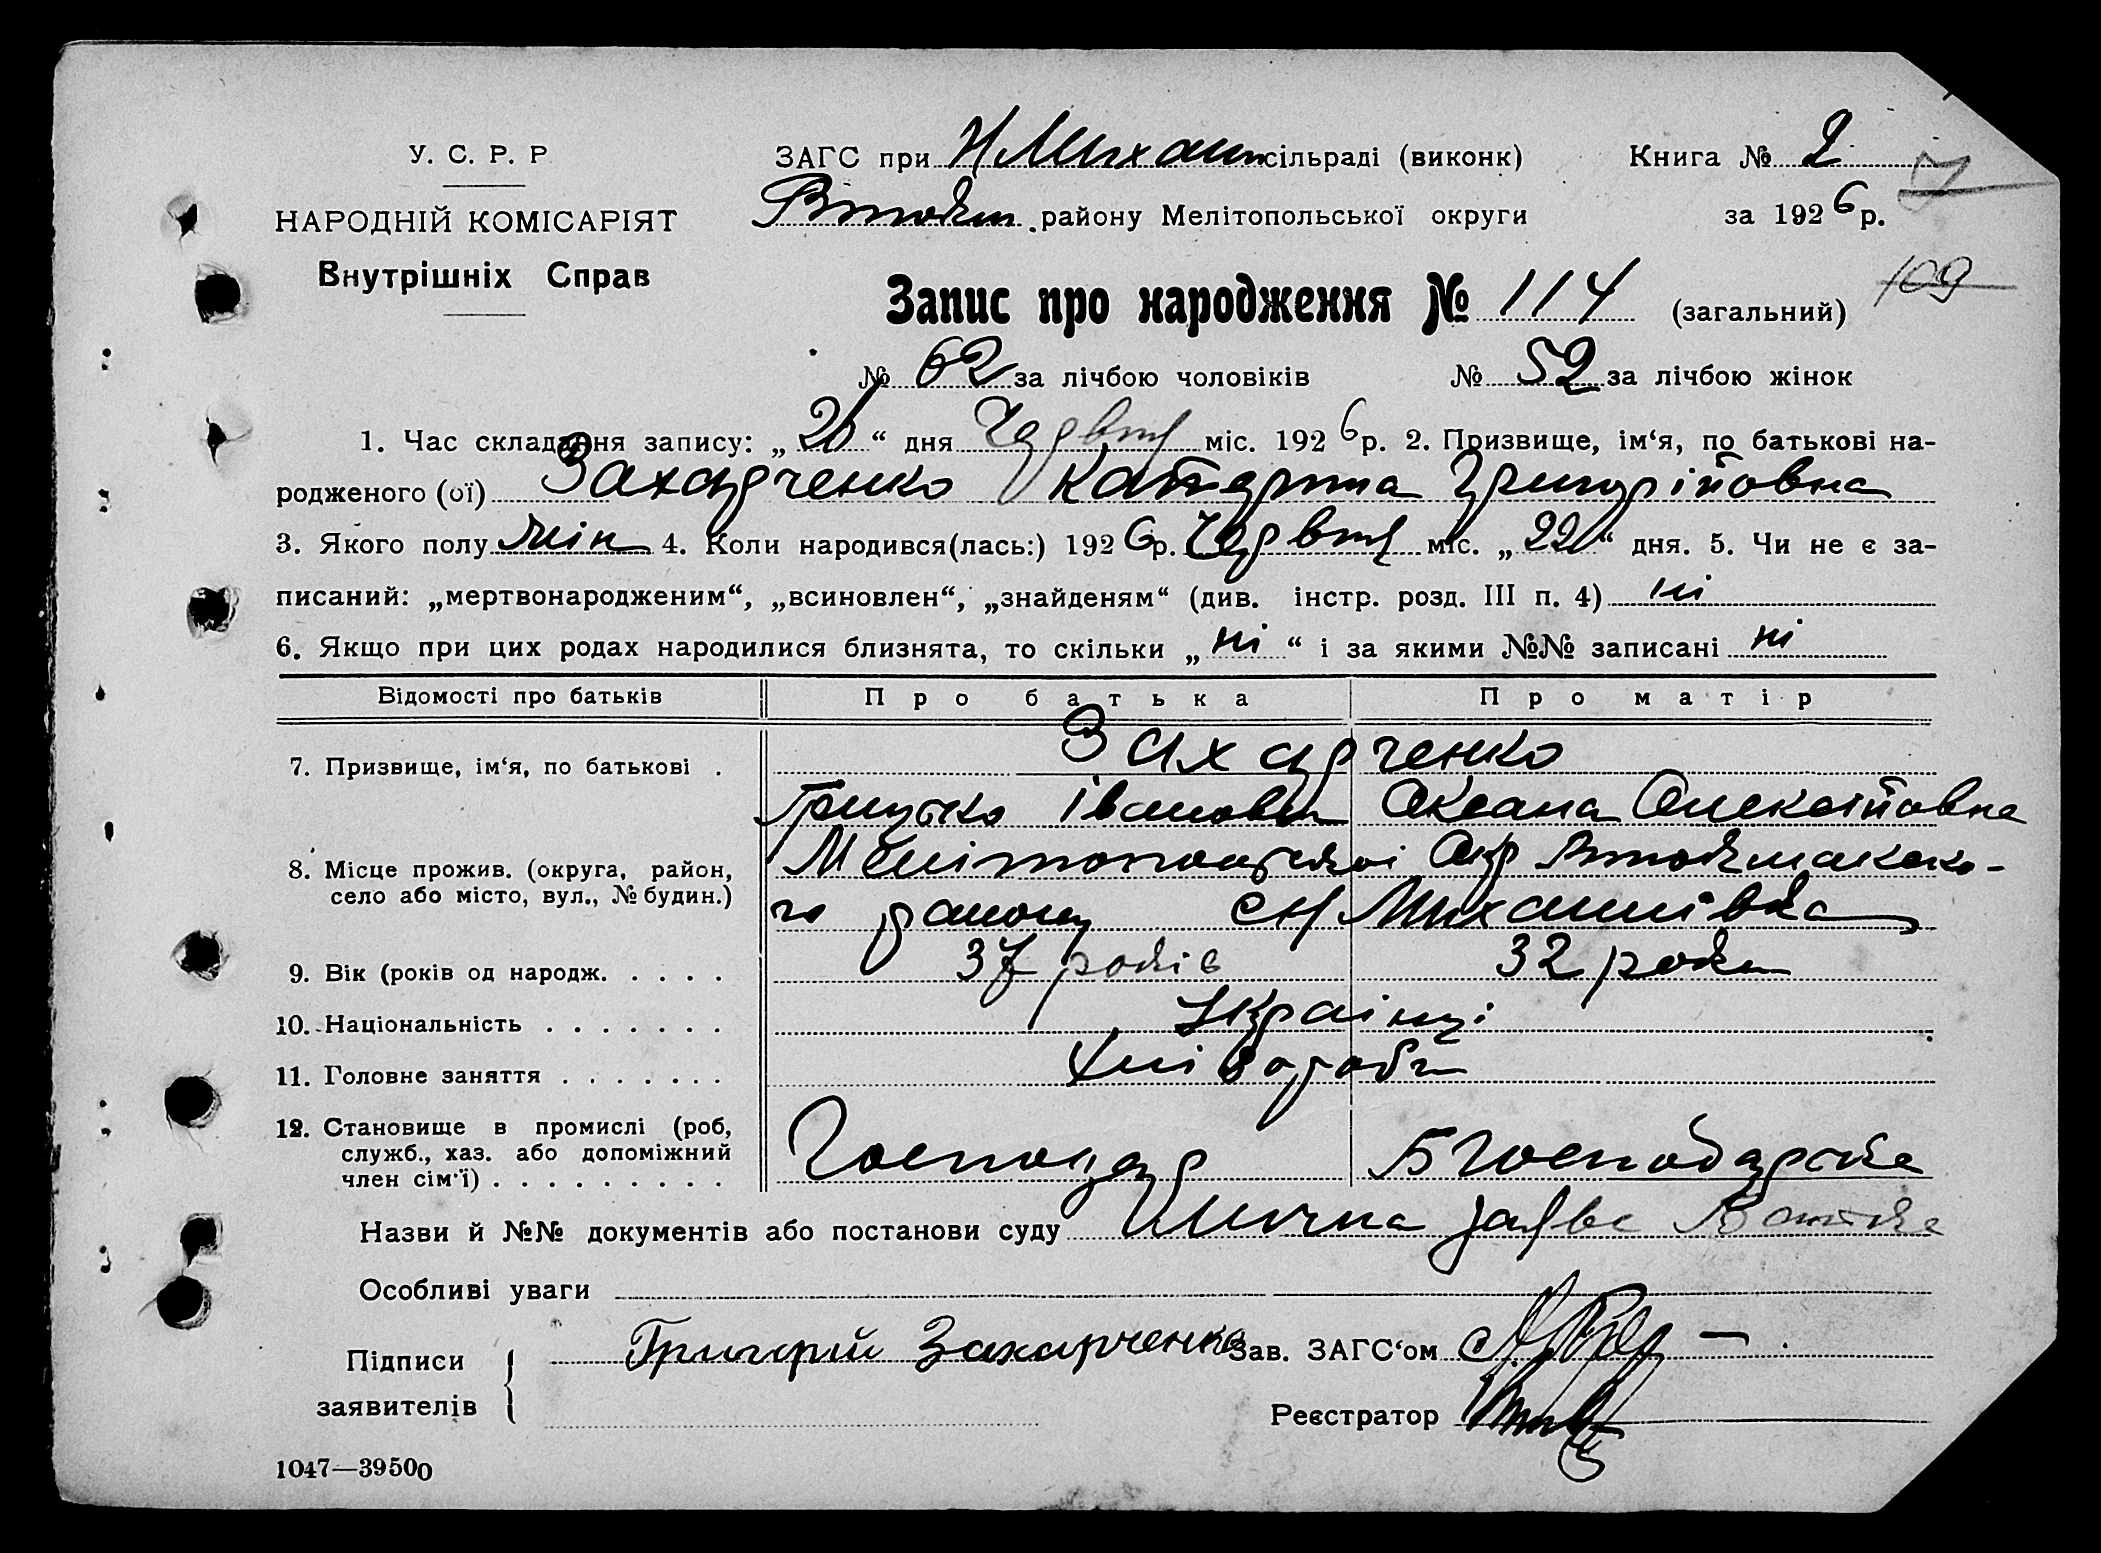 У. С. Р. Р
НАРОДНІЙ КОМІСАРІЯТ
Внутрішніх Справ
ЗАГС при Н Михайл сільраді (виконк) Книга № 2
Втокм. району Мелітопольської округи за 1926 р.
Запис про народження № 114 (загальний) 109
№ 62 за лічбою чоловіків № 52 за лічбою жінок
1. Час складання запису: „26“ дня Червня міс. 1926 р. 2. Призвище, ім‘я, по батькові на-
родженого (ої) Захарченко Катерина Григорійовна
3. Якого полу жін 4. Коли народився(лась:) 1926 р. Червня міс. „22“ дня. 5. Чи не є за-
писаний: „мертвонародженим“, „всиновлен“, „знайденям“ (див. інстр. розд. III п. 4) ні
6. Якщо при цих родах народилися близнята, то скільки „ні“ і за якими №№ записані ні
Відомості про батьків Про батька Про матір
7. Призвище, ім‘я, по батькові . Захарченко
Грицько Іванович Оксана Олексійовна
8. Місце прожив. (округа, район, село або місто, вул., № будин.) Мелітопольської Окр Втокмаксько-
го району с Н Михайлівка
9. Вік (років од народж. . . . . 37 років 32 роки
10. Національність . . . . . . . Українці
11. Головне заняття . . . . . . . Хлібороби
12. Становище в промислі (роб, служб., хаз. або допоміжний член сім‘ї) . . . . . . . . . Господар Б господарстве
Назви й №№ документів або постанови суду Лична заява Батьке
Особливі уваги
Підписи заявителів Григорій Захарченко Зав. ЗАГС‘ом
Реєстратор
1047—39500